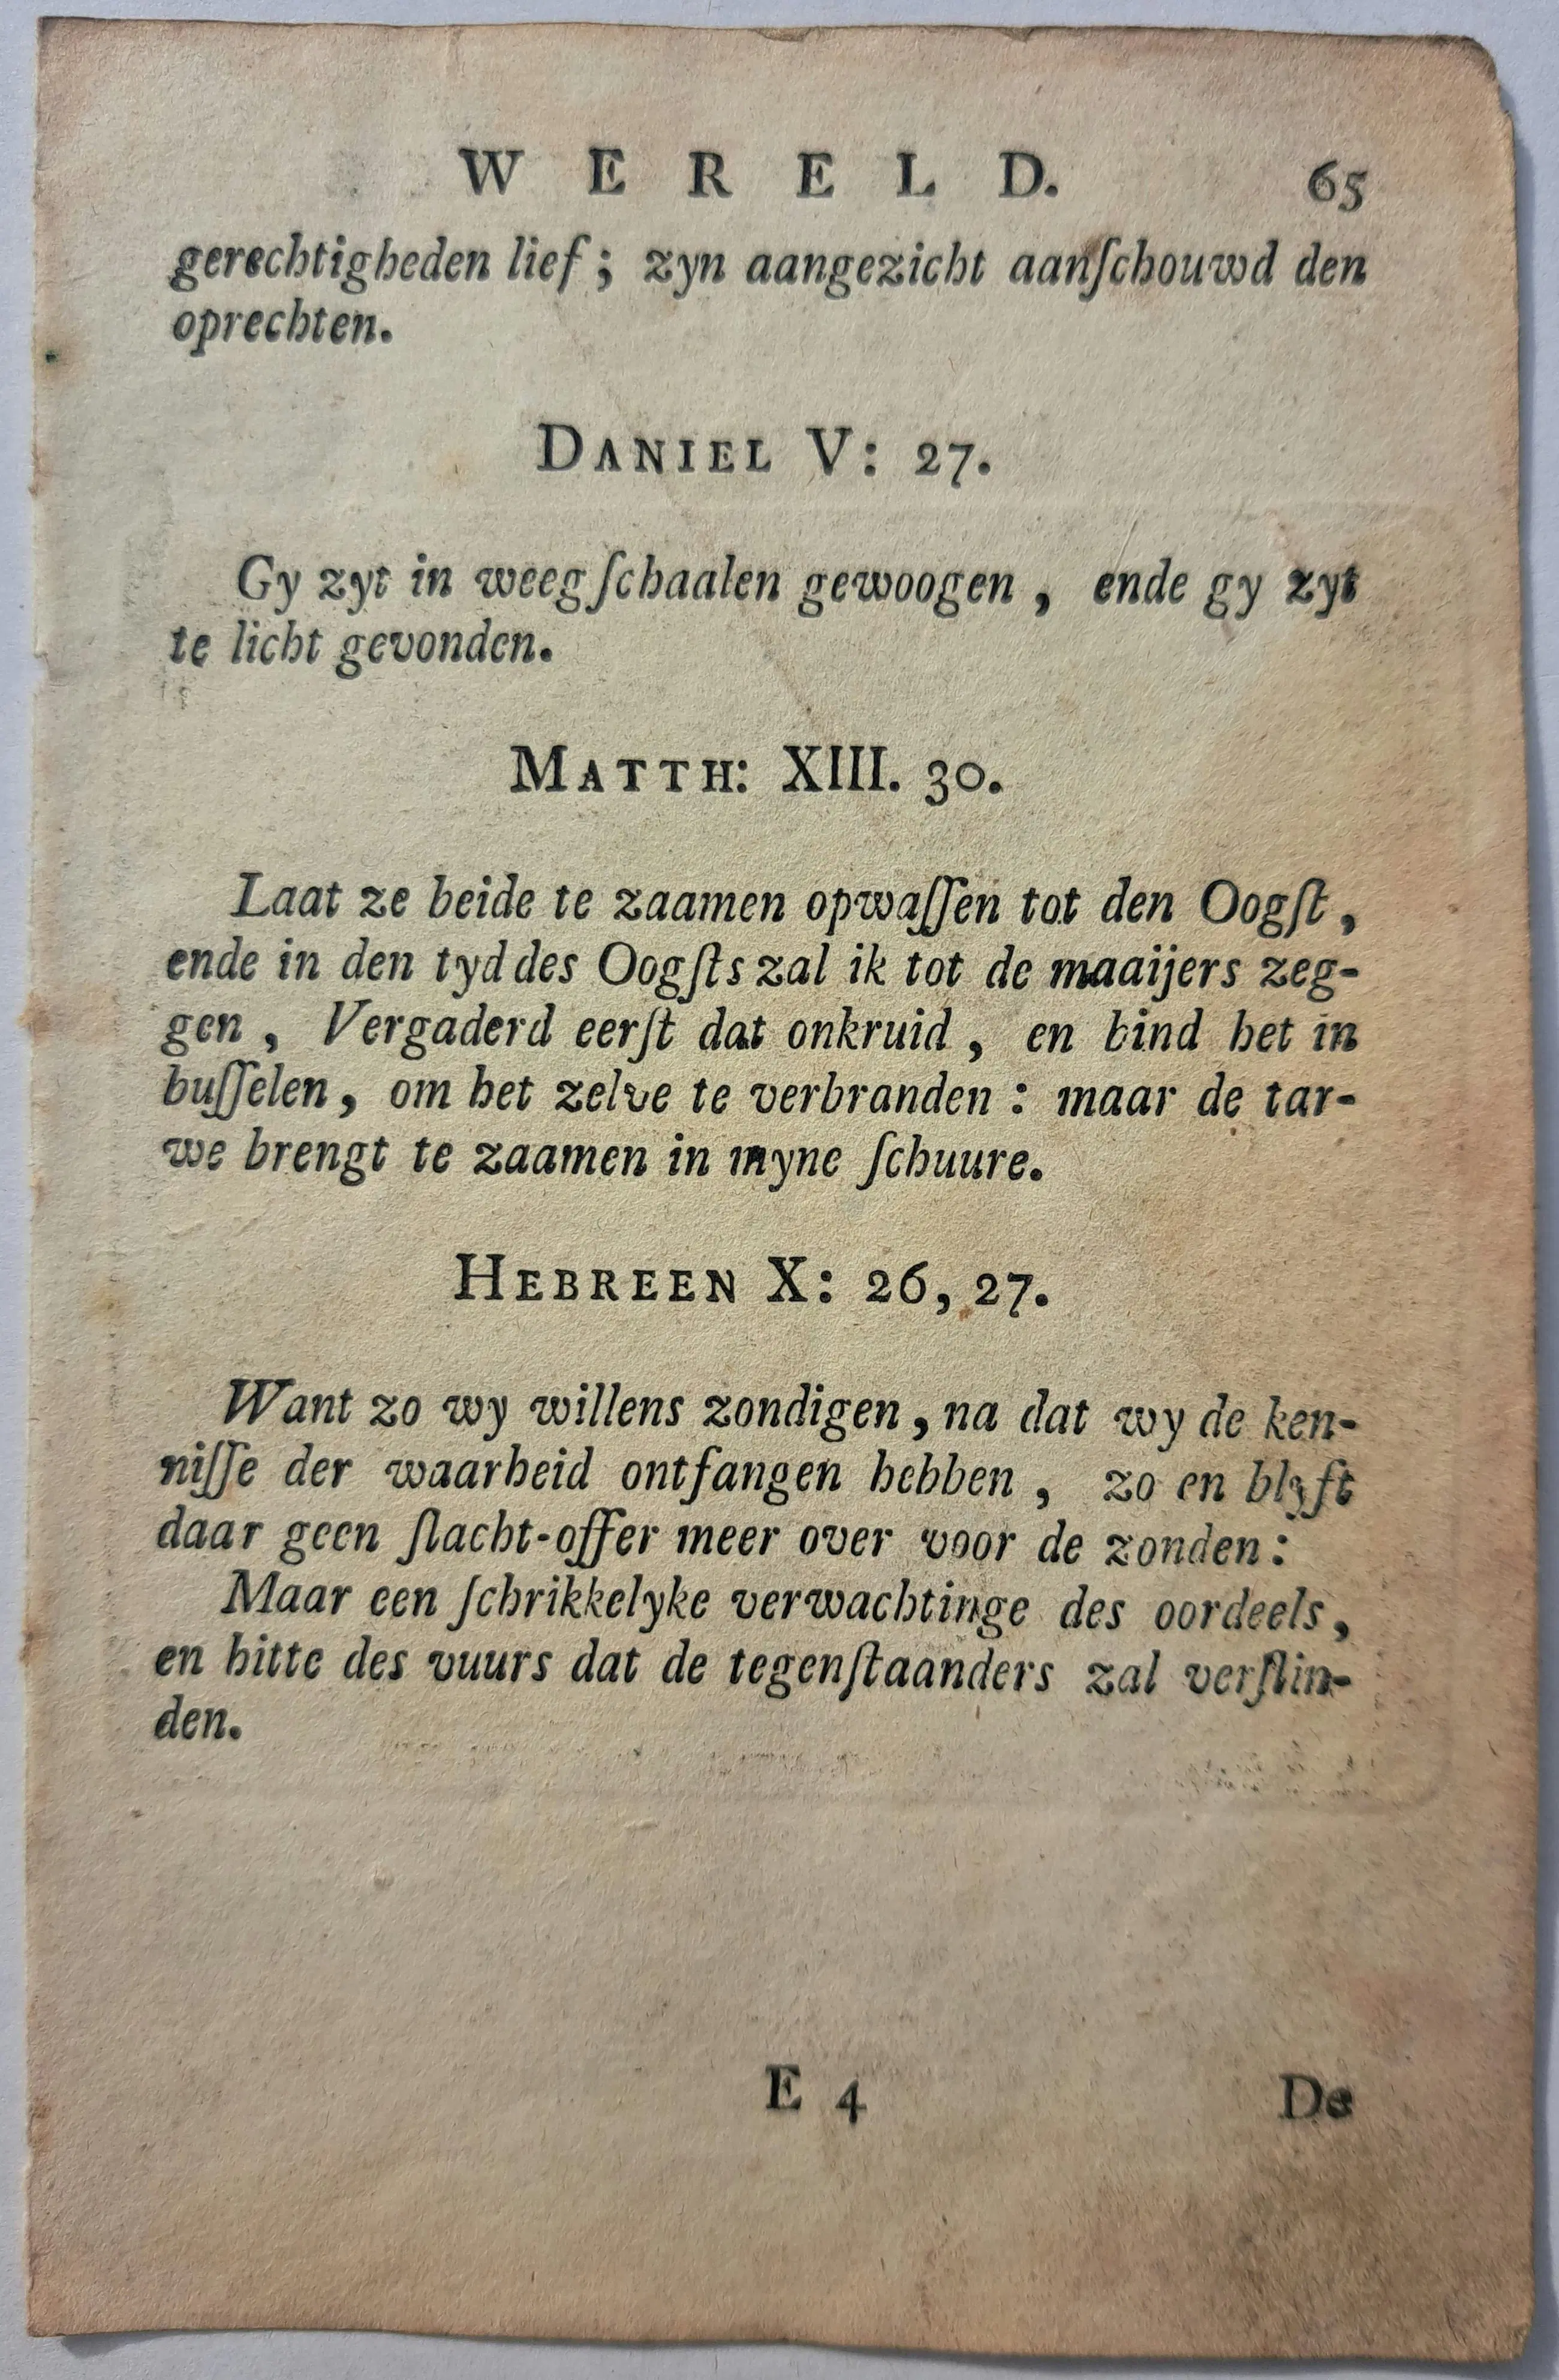 WERELD. 65
gerechtigheden lief; zyn aangezicht aanſchouwd den
oprechten.
DANIEL V: 27.
Gy zyt in weegſchaalen gewoogen, ende gy zyt
te licht gevonden.
MATTH: XIII. 30.
Laat ze beide te zaamen opwaſſen tot den Oogſt,
ende in den tyd des Oogſts zal ik tot de maaijers zeg-
gen, Vergaderd eerſt dat onkruid, en bind het in
buſſelen, om het zelve te verbranden: maar de tar-
we brengt te zaamen in myne ſchuure.
HEBREEN X: 26, 27.
Want zo wy willens zondigen, na dat wy de ken-
niſſe der waarheid ontfangen hebben, zo en blyft
daar geen ſlacht-offer meer over voor de zonden:
Maar een ſchrikkelyke verwachtinge des oordeels,
en hitte des vuurs dat de tegenſtaanders zal verſlin-
den.
E 4 De